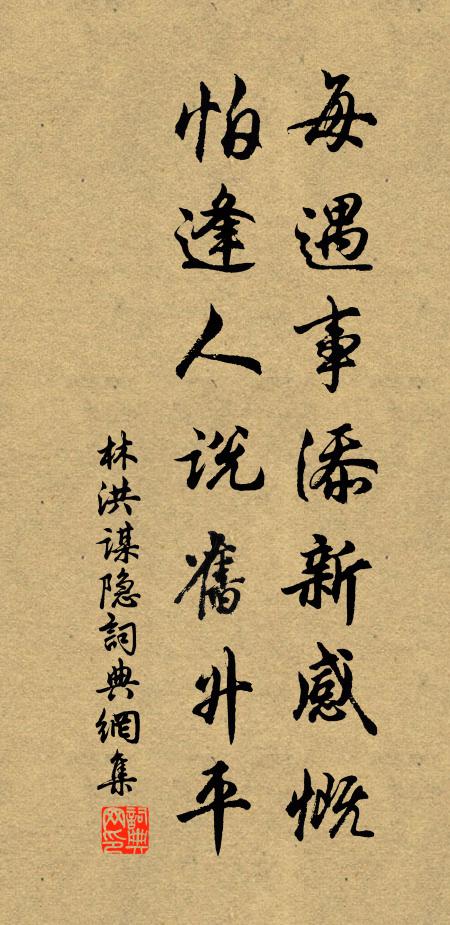 每遇事添新感慨
怕逢人说舊升平
林洪谋隐詞典網集
詞典網印